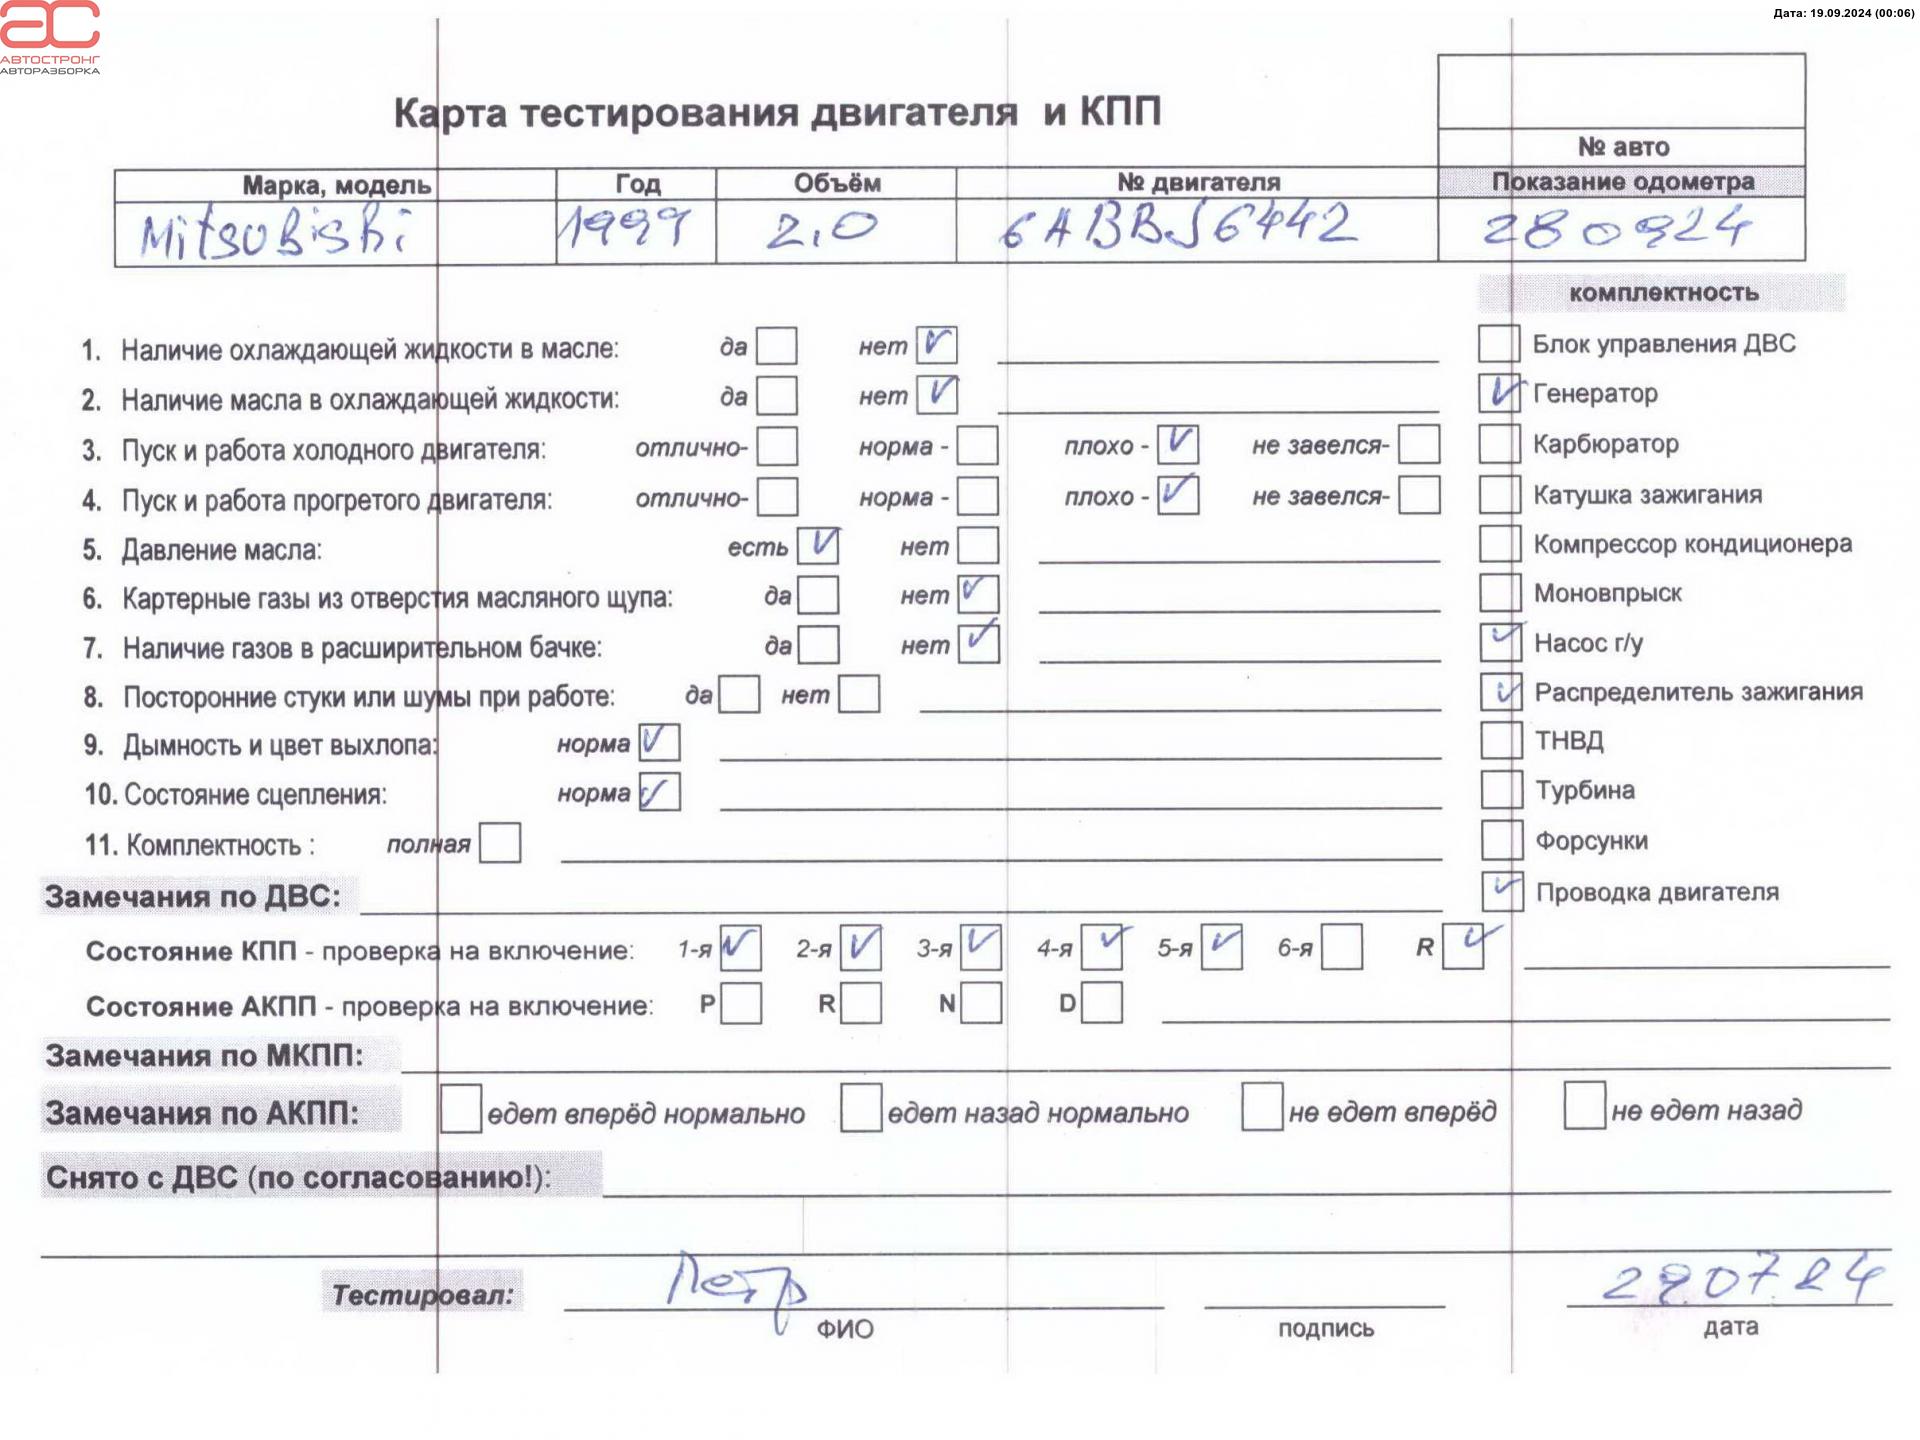 Дата: 19.09.2024 (00:06)
АС
АВТОСТРОНГ
АВТОРАЗБОРКА
Карта тестирования двигателя и КПП
№ авто
Марка, модель Год Объём № двигателя Показание одометра
Mitsubishi 1999 2,0 6ABBJ6442 280924
комплектность
1. Наличие охлаждающей жидкости в масле: да нет Блок управления ДВС
2. Наличие масла в охлаждающей жидкости: да нет Генератор
3. Пуск и работа холодного двигателя: отлично- норма - плохо - не завелся- Карбюратор
4. Пуск и работа прогретого двигателя: отлично- норма - плохо - не завелся- Катушка зажигания
5. Давление масла: есть нет Компрессор кондиционера
6. Картерные газы из отверстия масляного щупа: да нет Моновпрыск
7. Наличие газов в расширительном бачке: да нет Насос г/у
8. Посторонние стуки или шумы при работе: да нет Распределитель зажигания
9. Дымность и цвет выхлопа: норма ТНВД
10. Состояние сцепления: норма Турбина
11. Комплектность : полная Форсунки
Замечания по ДВС: Проводка двигателя
Состояние КПП - проверка на включение: 1-я 2-я 3-я 4-я 5-я 6-я R
Состояние АКПП - проверка на включение: P R N D
Замечания по МКПП:
Замечания по АКПП: едет вперёд нормально едет назад нормально не едет вперёд не едет назад
Снято с ДВС (по согласованию!):
Тестировал: Петр 29.07.24
ФИО подпись дата